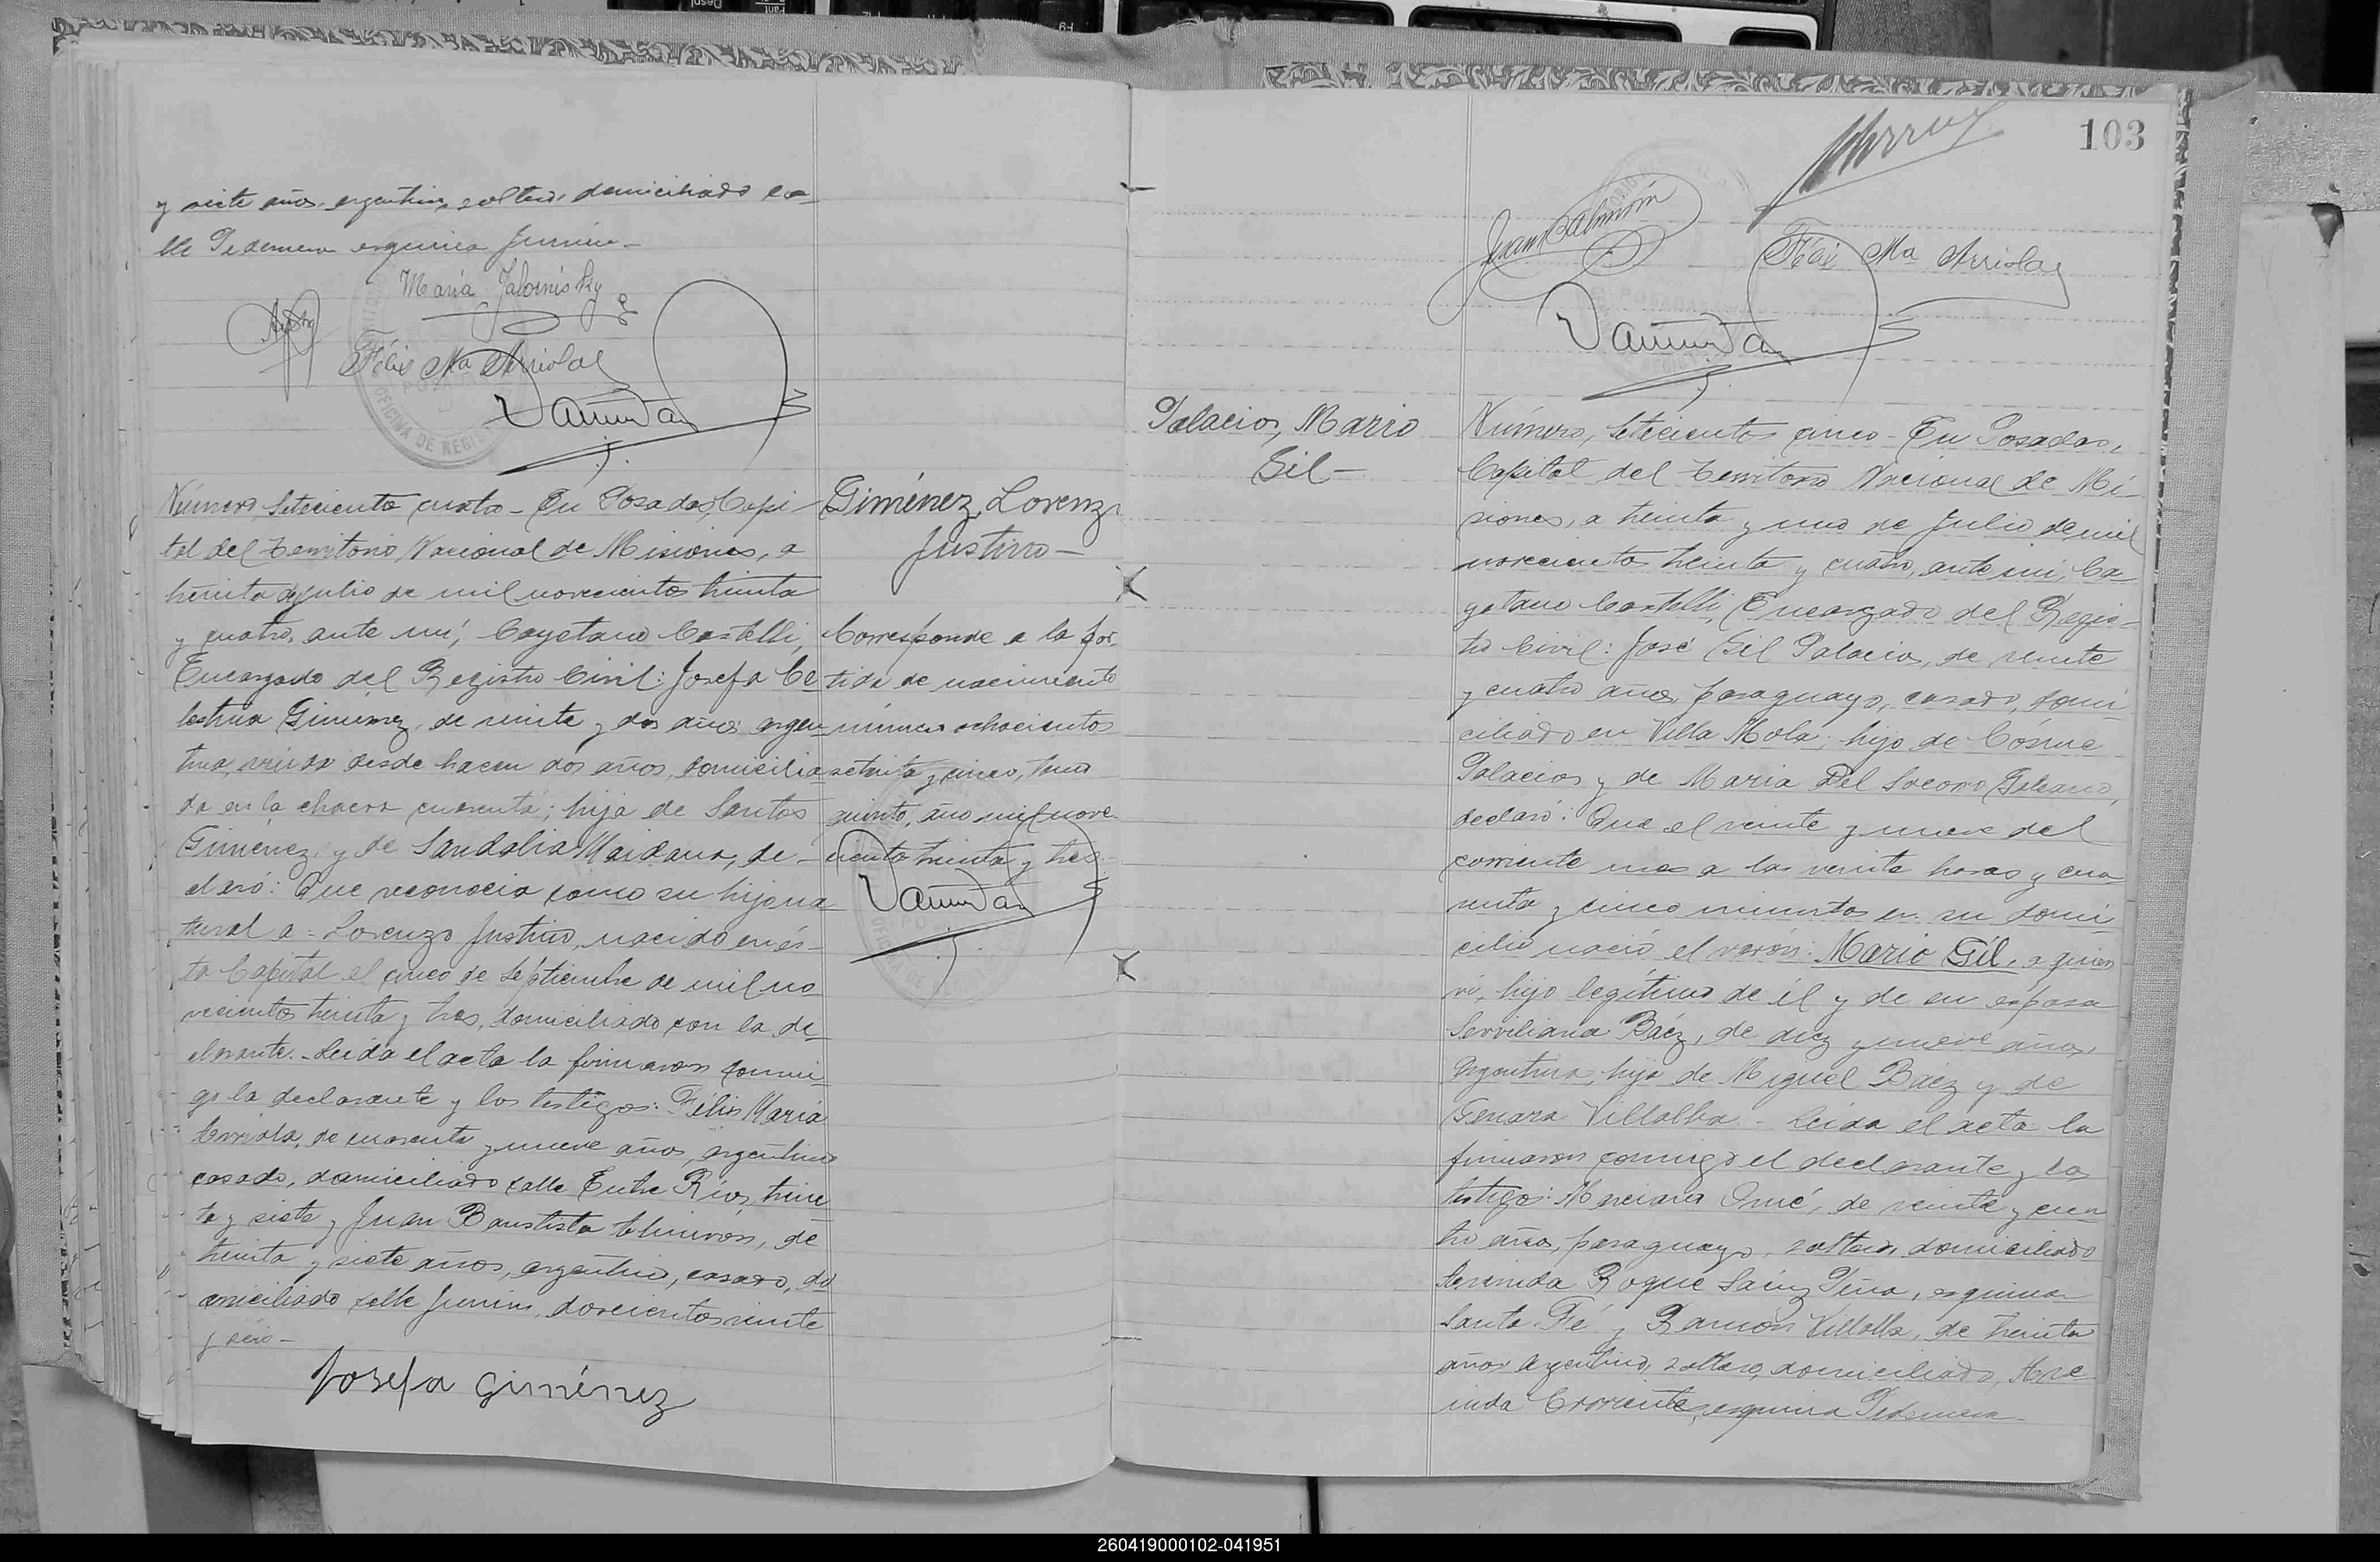 y siete años, argentino, soltero, domiciliado ca-
lle Pedernera esquina Junín-
María
Félix Ma Arriola
OFICINA DE REGIS
Número, Setecientos cuatro- En Posadas, Capi-
tal del Territorio Nacional de Misiones, a
treinta de Julio de mil novecientos treinta
y cuatro, ante mí, Cayetano Castelli,
Encargado del Registro Civil: Josefa Ce-
lestina Gimenez, de veinte y dos años, argen-
tina, viuda desde hacen dos años, domicilia-
da en la chacra cuarenta; hija de Santos
Giménez y de Sandalia Maidana, de-
claró: Que reconocía como su hijo na-
tural a: Lorenzo Justino, nacido en és-
ta Capital el cinco de Septiembre de mil no-
vecientos treinta y tres, domiciliado con la de-
clarante.- Leída el acta la firmaron conmi-
go la declarante y los testigos: Félix María
Arriola, de cuarenta y nueve años, argentino
casado, domiciliado calle Entre Ríos, trein-
ta y siete y Juan Baustista, de
treinta y siete años, argentino, casado, do-
miciliado calle Junín, doscientos veinte
y seis-
Josefa Giménez
Giménez, Lorenzo
Justino-
Corresponde a la par-
tida de nacimiento
número ochocientos
setenta y cinco, tomo
quinto, año mil nove-
cientos treinta y tres-
103
Félix Ma Arriola
POSADAS
Palacios, Mario
Gil-
Número, Setecientos cinco- En Posadas,
Capital del Territorio Nacional de Mi-
siones, a treinta y uno de Julio de mil
novecientos treinta y cuatro, ante mí, Ca-
yetano Castelli, Encargado del Regis-
tro Civil: José Gil Palacios, de veinte
y cuatro años, paraguayo, casado, domi-
ciliado en Villa Mola; hijo de Cósme
Palacios y de María Del Socorro Galeano,
declaró: Que el veinte y nueve del
corriente mes a las veinte horas y cua-
renta y cinco minutos en su domi-
cilio nació el varón: Mario Gil, a quien
ví, hijo legítimo de él y de su esposa
Serviliana Báez, de diez y nueve años,
Argentina, hija de Miguel Báez y de
Genara Villalba.- Leída el acta la
firmaron conmigo el declarante y los
testigos: Marciano Orué, de veinte y cua-
tro años, paraguayo, soltero, domiciliado
Avenida Roque Sáenz Peña, esquina
Santa Fé y Ramón Villalba, de treinta
años Argentino, soltero, domiciliado, Ave-
nida Corrientes, esquina Pedernera-
260419000102-041951